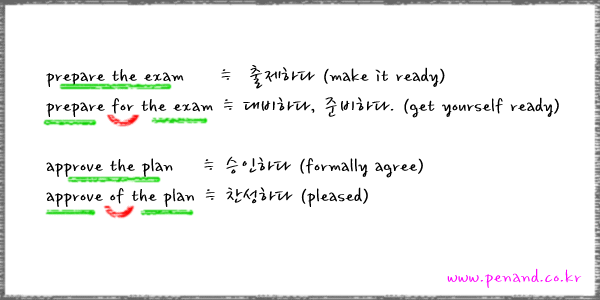 prepare the exam ≒ 출제하다 (make it ready)
prepare for the exam ≒ 대비하다, 준비하다. (get yourself ready)
approve the plan ≒ 승인하다 (formally agree)
approve of the plan ≒ 찬성하다 (pleased)
www.penand.co.kr